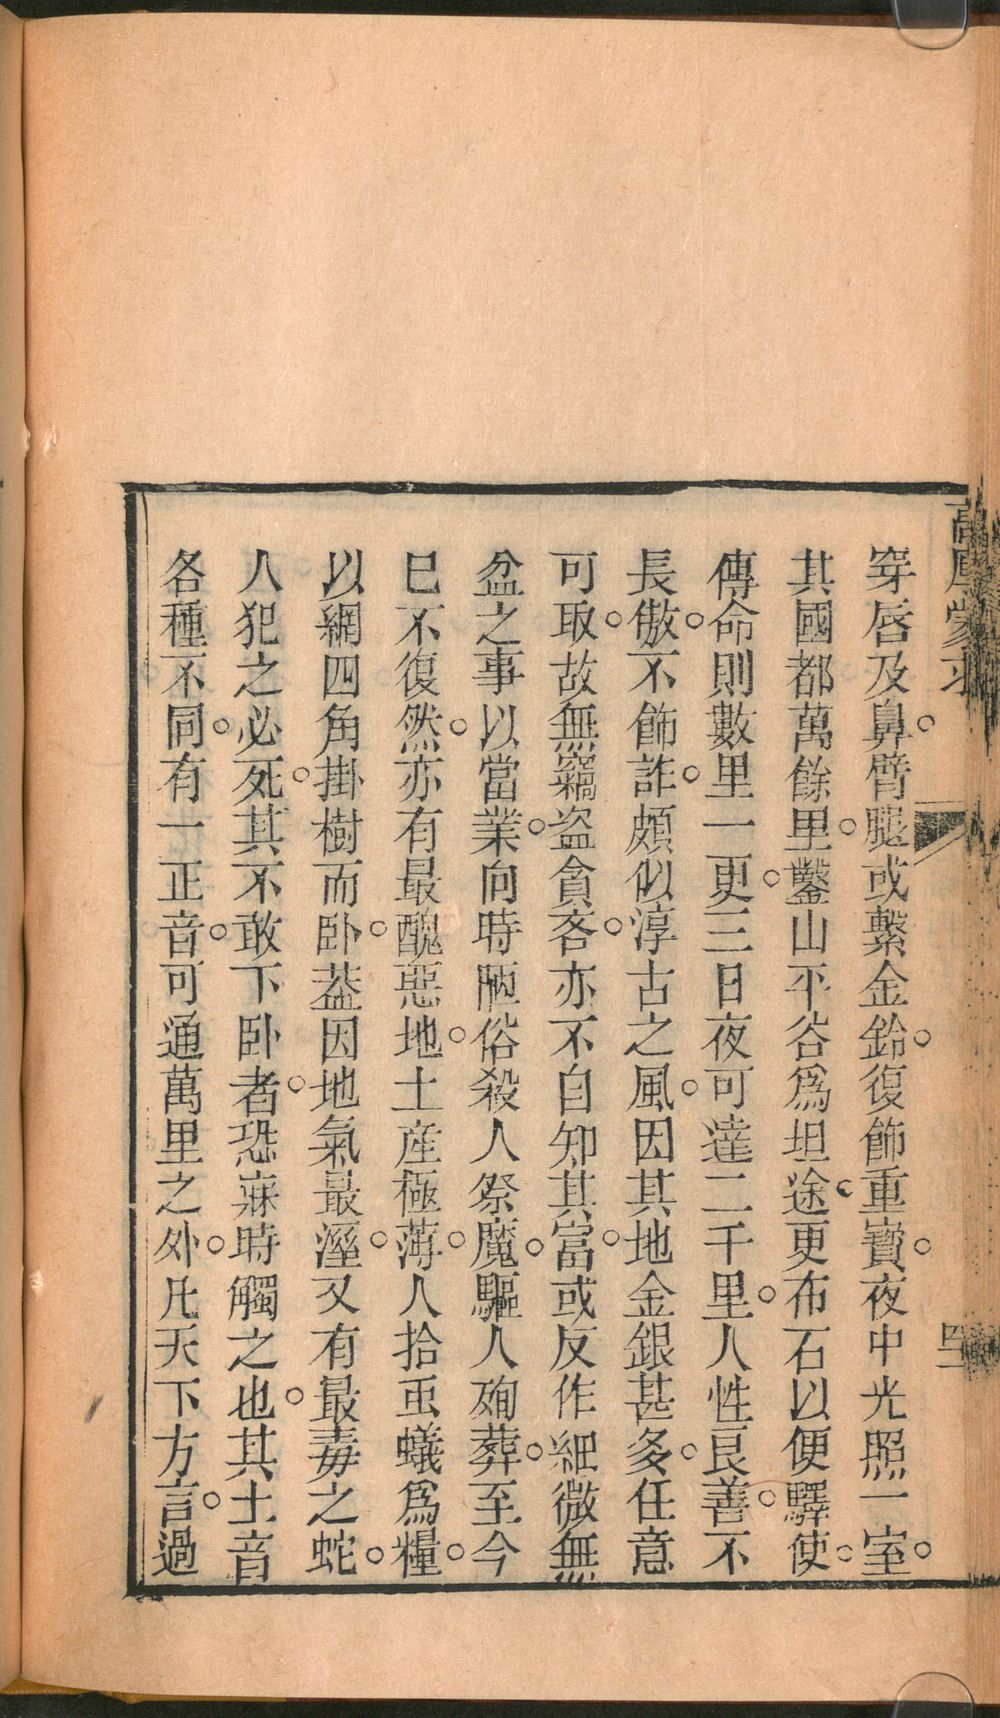 穿唇及鼻。臂腿或繫金鈴。復飾重寶。夜中光照一室。
其國都萬餘里。鑿山平谷爲坦途。更布石以便驛使。
傳命。則數里一更。三日夜可達二千里。人性良善。不
長傲。不飾詐。頗似淳古之風。因其地金銀甚多。任意
可取。故無竊盜貪吝。亦不自知其富。或反作細微無
益之事以當業。向時陋俗。殺人祭魔。驅人殉葬。至今
巳不復然。亦有最醜惡地。土産極薄。人拾虫蟻爲糧。
以網四角掛樹而卧。葢因地氣最溼。又有最毒之蛇。
人犯之必死。其不敢下卧者。恐寐時觸之也。其土音
各種不同。有一正音。可通萬里之外。凡天下方言。過